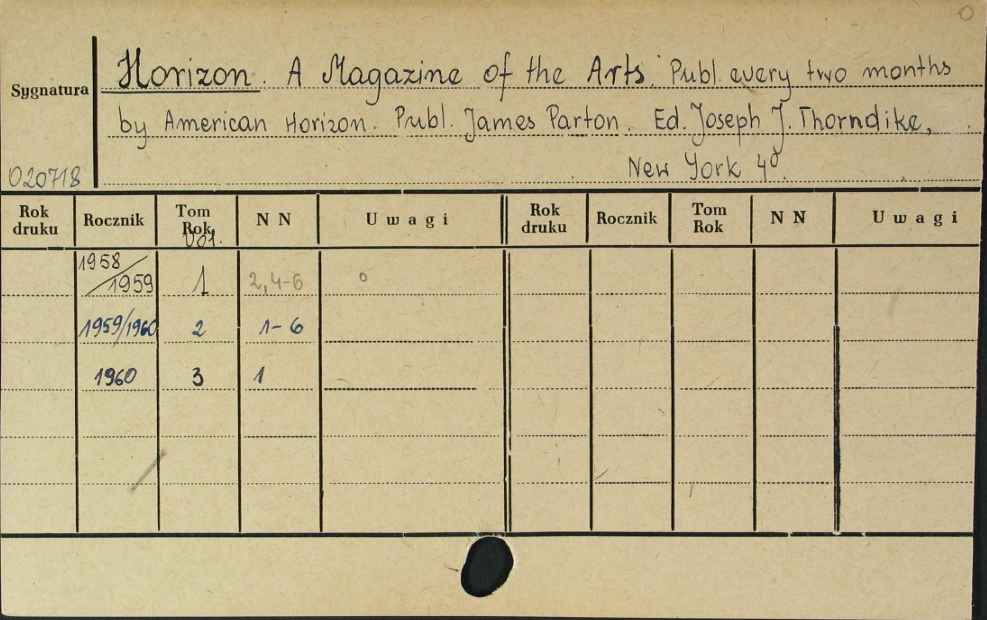 Horizon. A Magazine of the Arts. Publ. every two months
Sygnatura
by American Horizon. Publ. James Parton. Ed. Joseph J. Thorndike,
New York 4º
020718
Rok druku Rocznik Tom Rok Vol. N N Uwagi Rok druku Rocznik Tom Rok N N Uwagi
1958/1959 1 2,4-6
1959/1960 2 1-6
1960 3 1